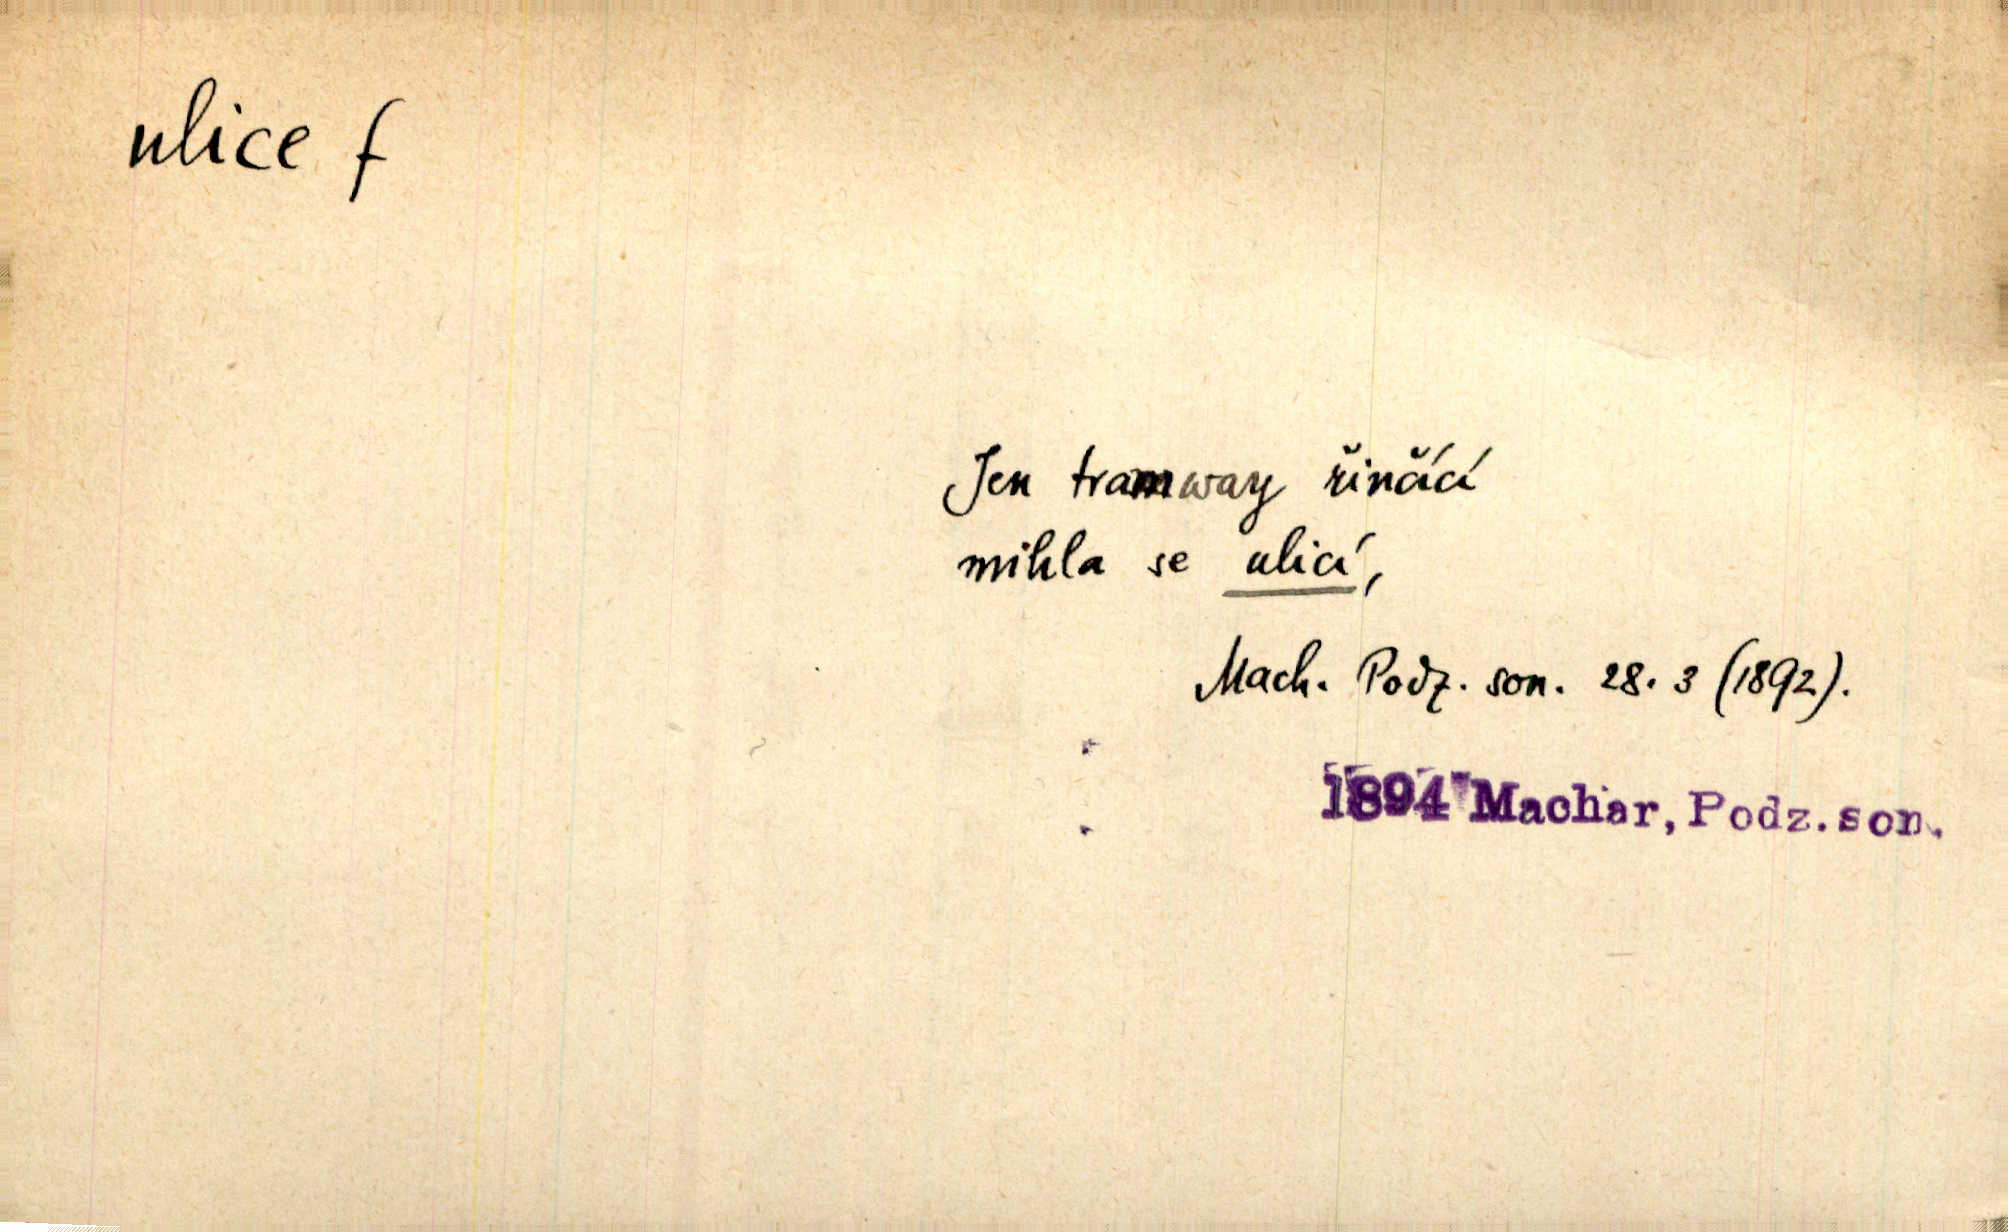 ulice f
Jen tramway řinčící
mihla se ulicí,
Mach. Podz. son. 28. 3 (1892).
1894 Machar, Podz. son.